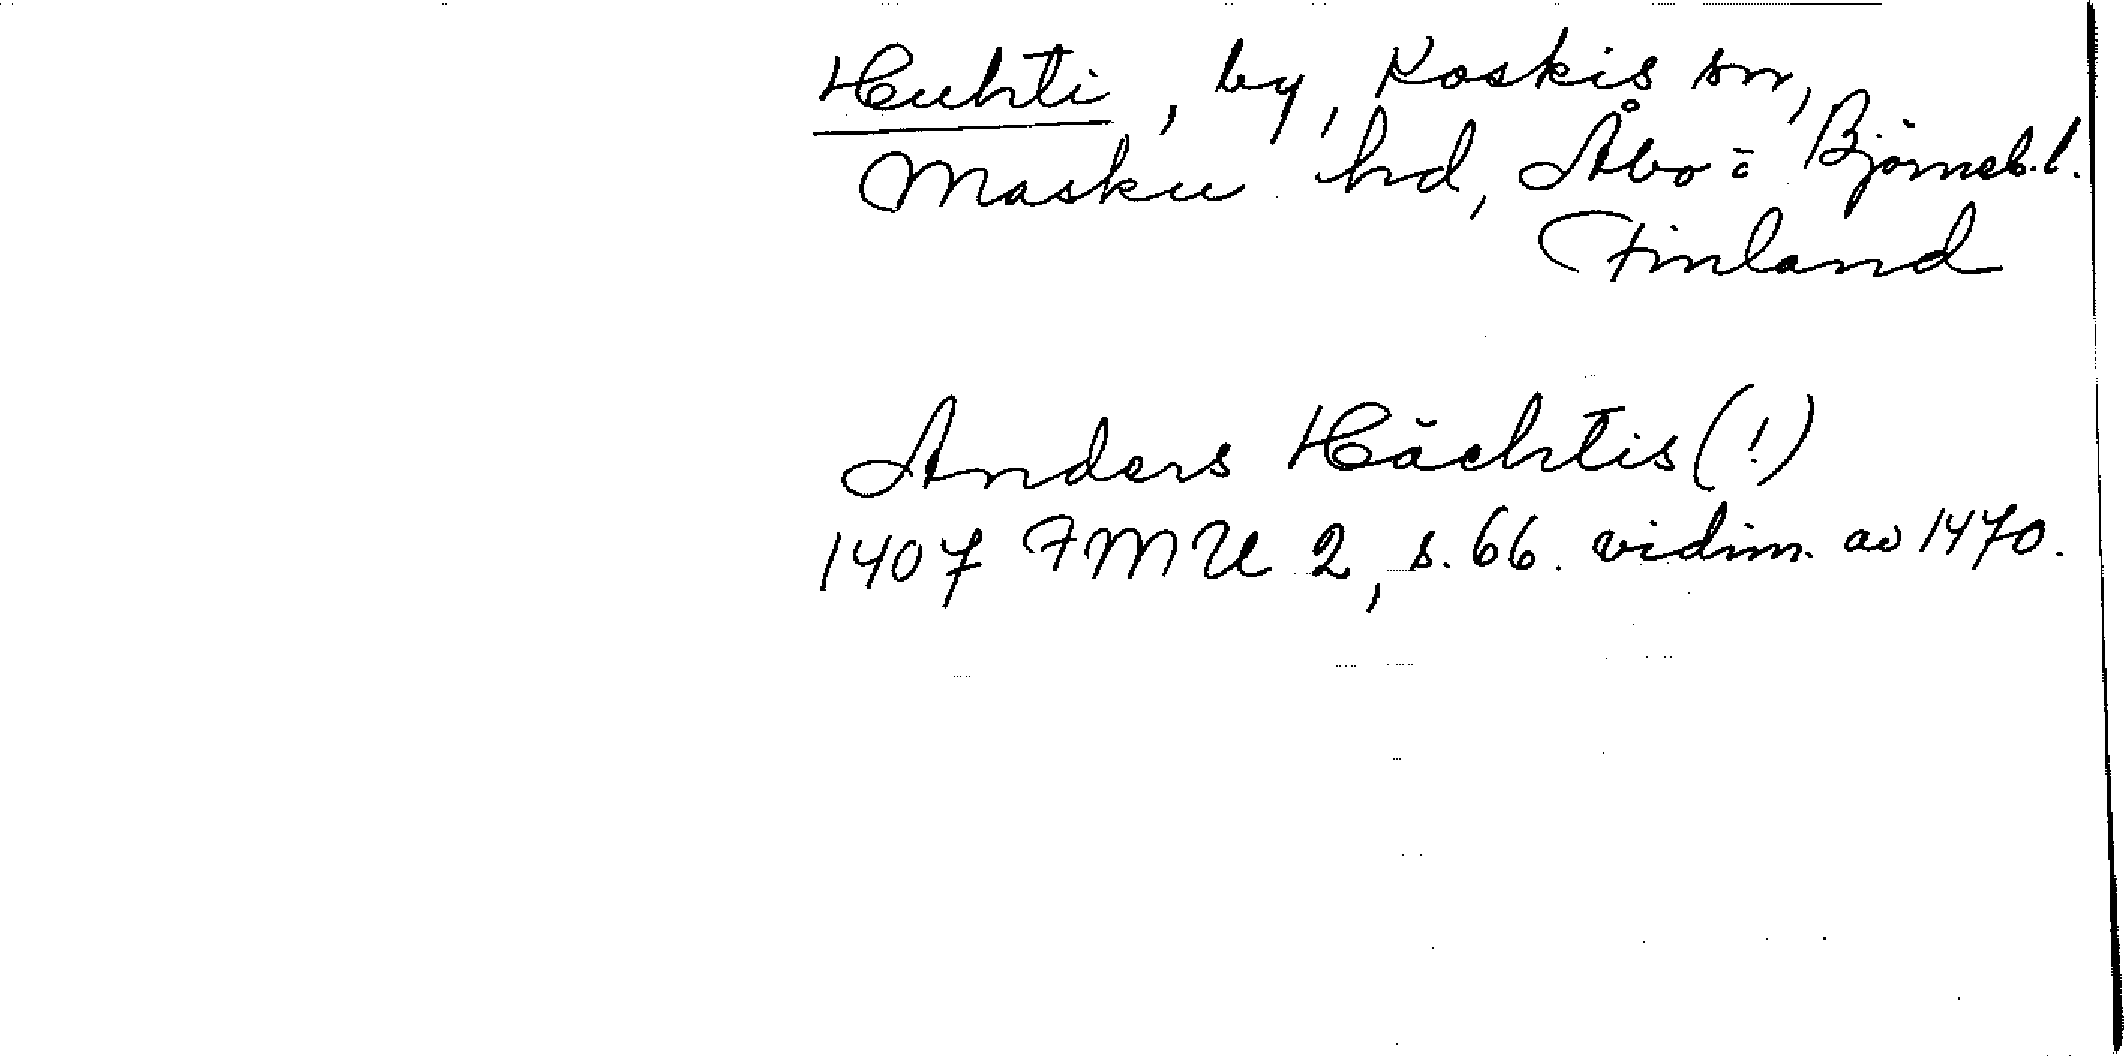 Huhti, by, Koskis sn,
Masku hd, Åbo o Björneb. l.
Finland
Anders Hächtis (!)
1407 FMU 2, s. 66. vidim. av 1470.